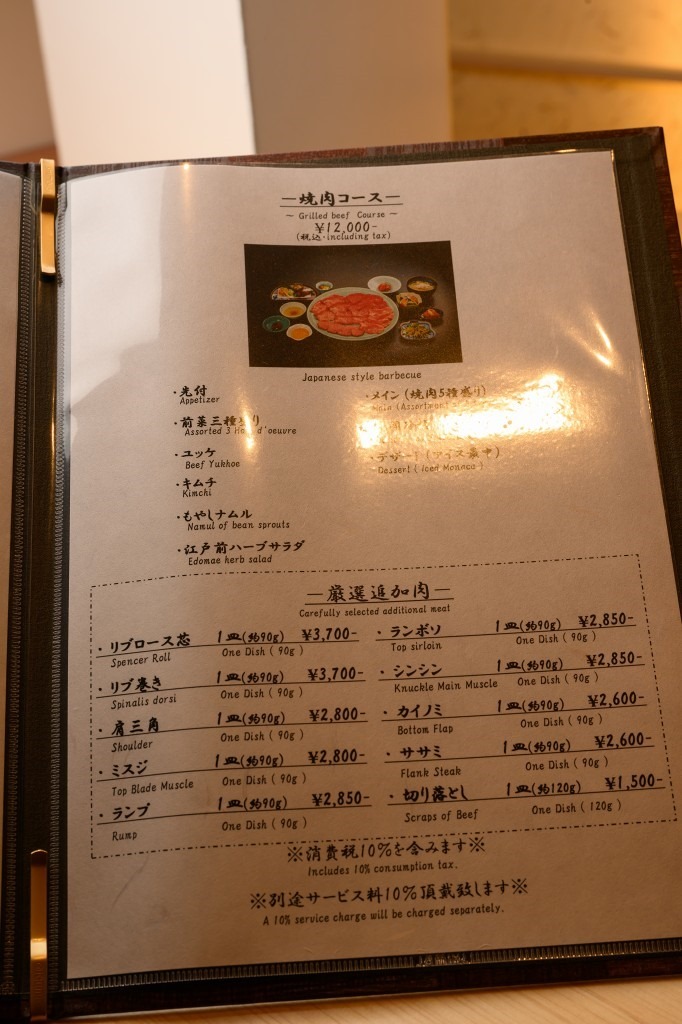 —焼肉コース—
～ Grilled beef Course ～
¥12,000-
(税込・including tax)
Japanese style barbecue
・先付
Appetizer
・前菜三種盛り
Assorted 3 Hors d'oeuvre
・ユッケ
Beef Yukhoe
・キムチ
Kimchi
・もやしナムル
Namul of bean sprouts
・江戸前ハーブサラダ
Edomae herb salad
・メイン (焼肉5種盛り)
Main (Assortment
・デザート (アイス最中)
Dessert ( Iced Monaca )
—厳選追加肉—
Carefully selected additional meat
・リブロース芯 1皿(約90g) ¥3,700-
Spencer Roll One Dish ( 90g )
・リブ巻き 1皿(約90g) ¥3,700-
Spinalis dorsi One Dish ( 90g )
・肩三角 1皿(約90g) ¥2,800-
Shoulder One Dish ( 90g )
・ミスジ 1皿(約90g) ¥2,800-
Top Blade Muscle One Dish ( 90g )
・ランプ 1皿(約90g) ¥2,850-
Rump One Dish ( 90g )
・ランボソ 1皿(約90g) ¥2,850-
Top sirloin One Dish ( 90g )
・シンシン 1皿(約90g) ¥2,850-
Knuckle Main Muscle One Dish ( 90g )
・カイノミ 1皿(約90g) ¥2,600-
Bottom Flap One Dish ( 90g )
・ササミ 1皿(約90g) ¥2,600-
Flank Steak One Dish ( 90g )
・切り落とし 1皿(約120g) ¥1,500-
Scraps of Beef One Dish ( 120g )
※消費税10%を含みます※
Includes 10% consumption tax.
※別途サービス料10%頂戴致します※
A 10% service charge will be charged separately.